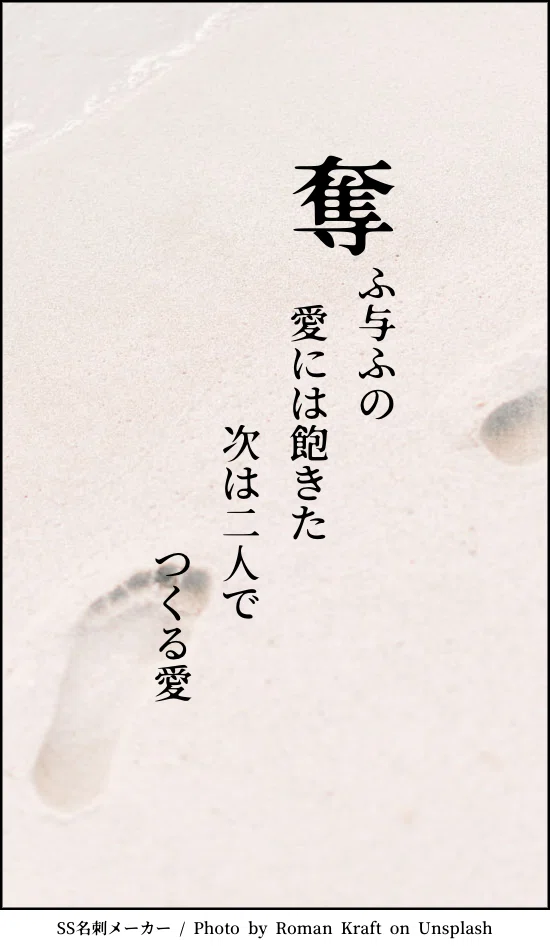 奪ふ与ふの
愛には飽きた
次は二人で
つくる愛
SS名刺メーカー / Photo by Roman Kraft on Unsplash